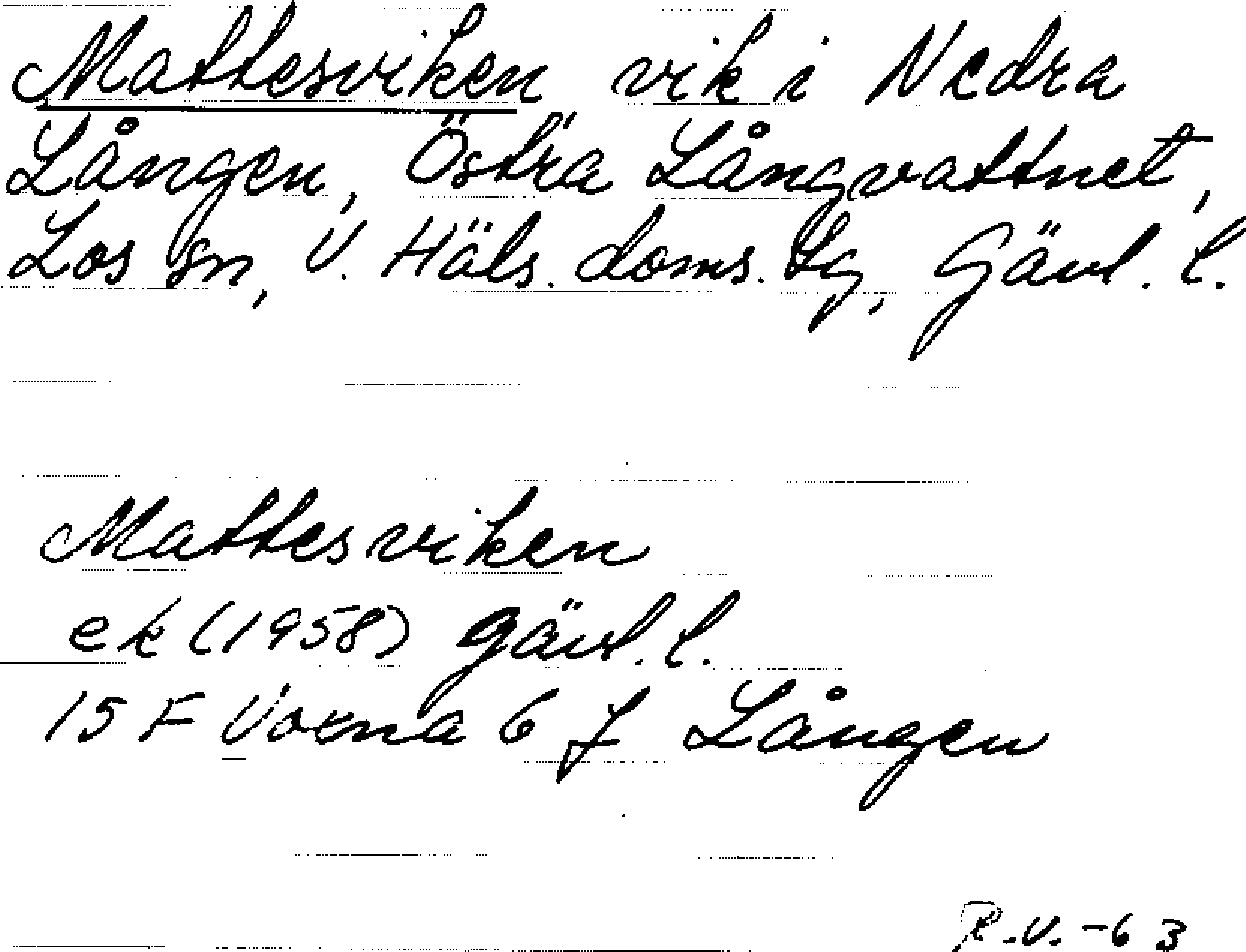 Mattesviken vik i Nedra
Lången, Östra Långvattnet,
Los sn, V. Häls. doms. tg, Gävl. l.
Mattesviken
ek (1958) Gävl. l.
15 F Voxna 6 f Lången
R.V. -63